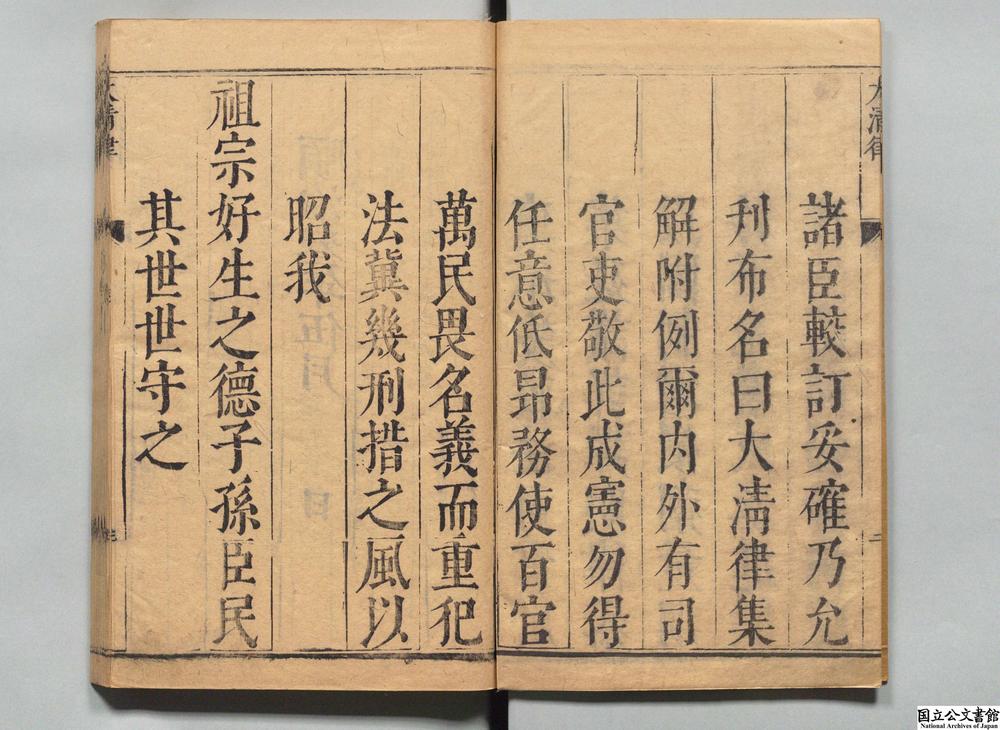 大清律
諸臣較訂妥確乃允
刋布名曰大淸律集
解附例爾内外有司
官吏敬此成憲勿得
任意低昻務使百官
萬民畏名義而重犯
法冀幾刑措之風以
昭我
祖宗好生之德子孫臣民
其世世守之
大清律
国立公文書館
National Archives of Japan